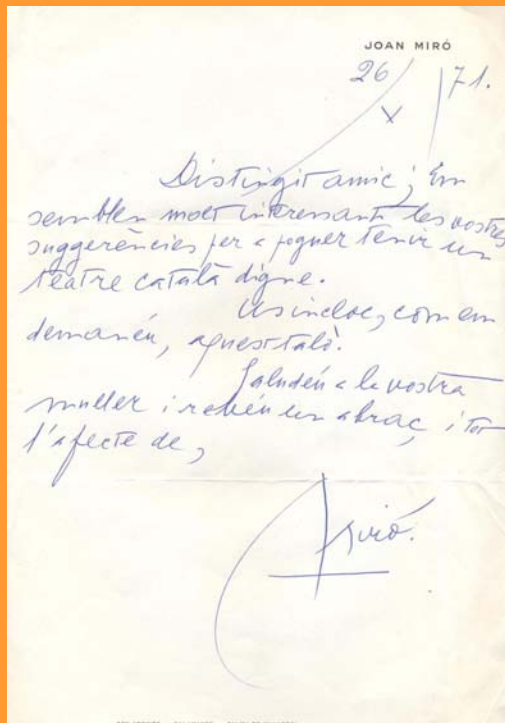 JOAN MIRÓ
26 / X / 71.
Distingit amic; Em
semblen molt interessants les vostres
suggerències per a poguer tenir un
teatre català digne.
Us incloc, com em
demanéu, aquest taló.
Saludéu a la vostra
muller i rebéu un abraç, i tot
l'afecte de,
Miró.